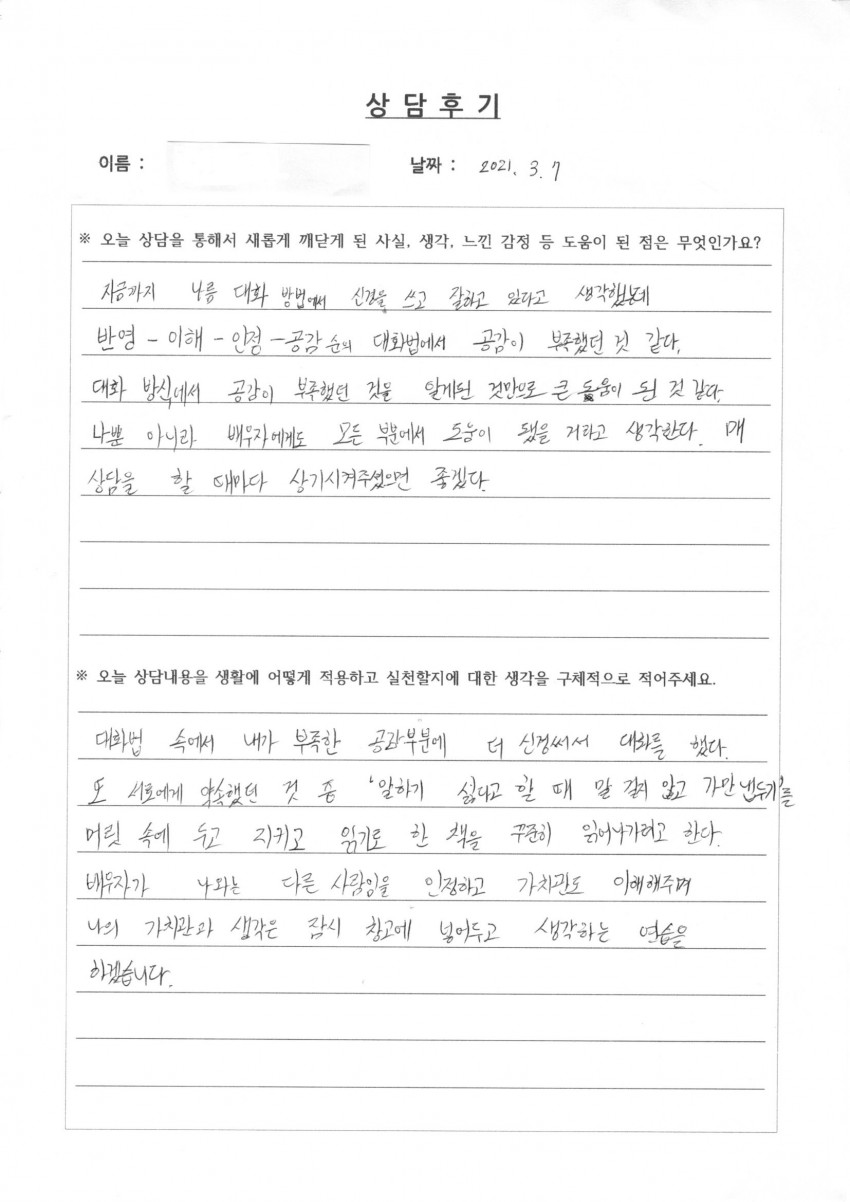 상 담 후 기
이름 :
날짜 : 2021. 3. 7
※ 오늘 상담을 통해서 새롭게 깨닫게 된 사실, 생각, 느낀 감정 등 도움이 된 점은 무엇인가요?
지금까지 나름 대화 방법에서 신경을 쓰고 잘하고 있다고 생각했는데
반영 - 이해 - 인정 - 공감 순의 대화법에서 공감이 부족했던 것 같다.
대화 방식에서 공감이 부족했던 것을 알게된 것만으로 큰 도움이 된 것 같다.
나뿐 아니라 배우자에게도 모든 부분에서 도움이 됐을 거라고 생각한다. 매
상담을 할 때마다 상기시켜주셨으면 좋겠다.
※ 오늘 상담내용을 생활에 어떻게 적용하고 실천할지에 대한 생각을 구체적으로 적어주세요.
대화법 속에서 내가 부족한 공감부분에 더 신경써서 대화를 했다.
또 서로에게 약속했던 것 중 '말하기 싫다고 할 때 말 걸지 않고 가만 냅두기'를
머릿 속에 두고 지키고 읽기로 한 책을 꾸준히 읽어나가려고 한다.
배우자가 나와는 다른 사람임을 인정하고 가치관도 이해해주며
나의 가치관과 생각은 잠시 창고에 넣어두고 생각하는 연습을
하겠습니다.